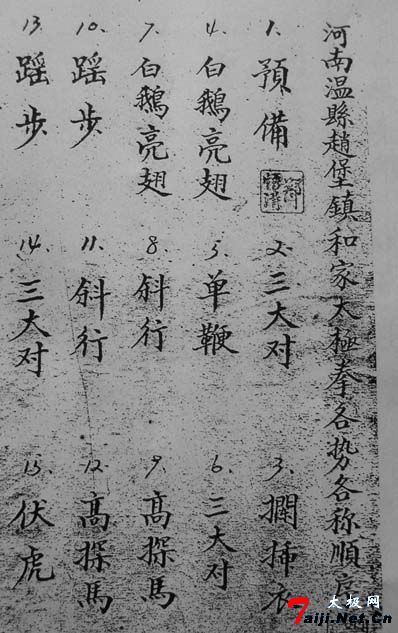 河南温縣趙堡鎮和家太極拳各势各称順序
1. 預備
鄭悟清
2. 三大对
3. 攔挿衣
4. 白鵝亮翅
5. 单鞭
6. 三大对
7. 白鵝亮翅
8. 斜行
9. 高探馬
10. 䠛步
11. 斜行
12. 高探馬
13. 䠛步
14. 三大对
15. 伏虎
太极网
7aiji.Net.Cn